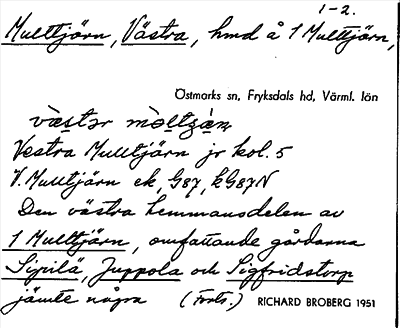 1-2.
Multtjärn, Västra, hmd å 1 Multtjärn,
Östmarks sn, Fryksdals hd, Värml. län
Vestra Mulltjärn jr kol. 5
V. Multjärn ek, G87, kG87N
Den västra hemmansdelen av
1 Multtjärn, omfattande gårdarna
Sipilä, Juppola och Sigfridstorp
jämte några (Forts.) RICHARD BROBERG 1951